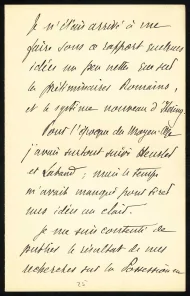 Je n'étais arrivé à me
faire sous ce rapport quelques
idées un peu nettes que sur
les préliminaires Romains,
et le système nouveau d'Ihering.
Pour l'époque du Moyen Age
j'avais surtout suivi Heusler
et Laband ; mais le temps
m'avait manqué pour tirer
mes idées au clair.
Je me suis contenté de
publier le résultat de mes
recherches sur la Possession en